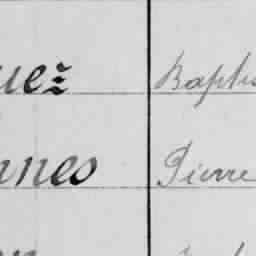 uez Baptis
nnes Pierre